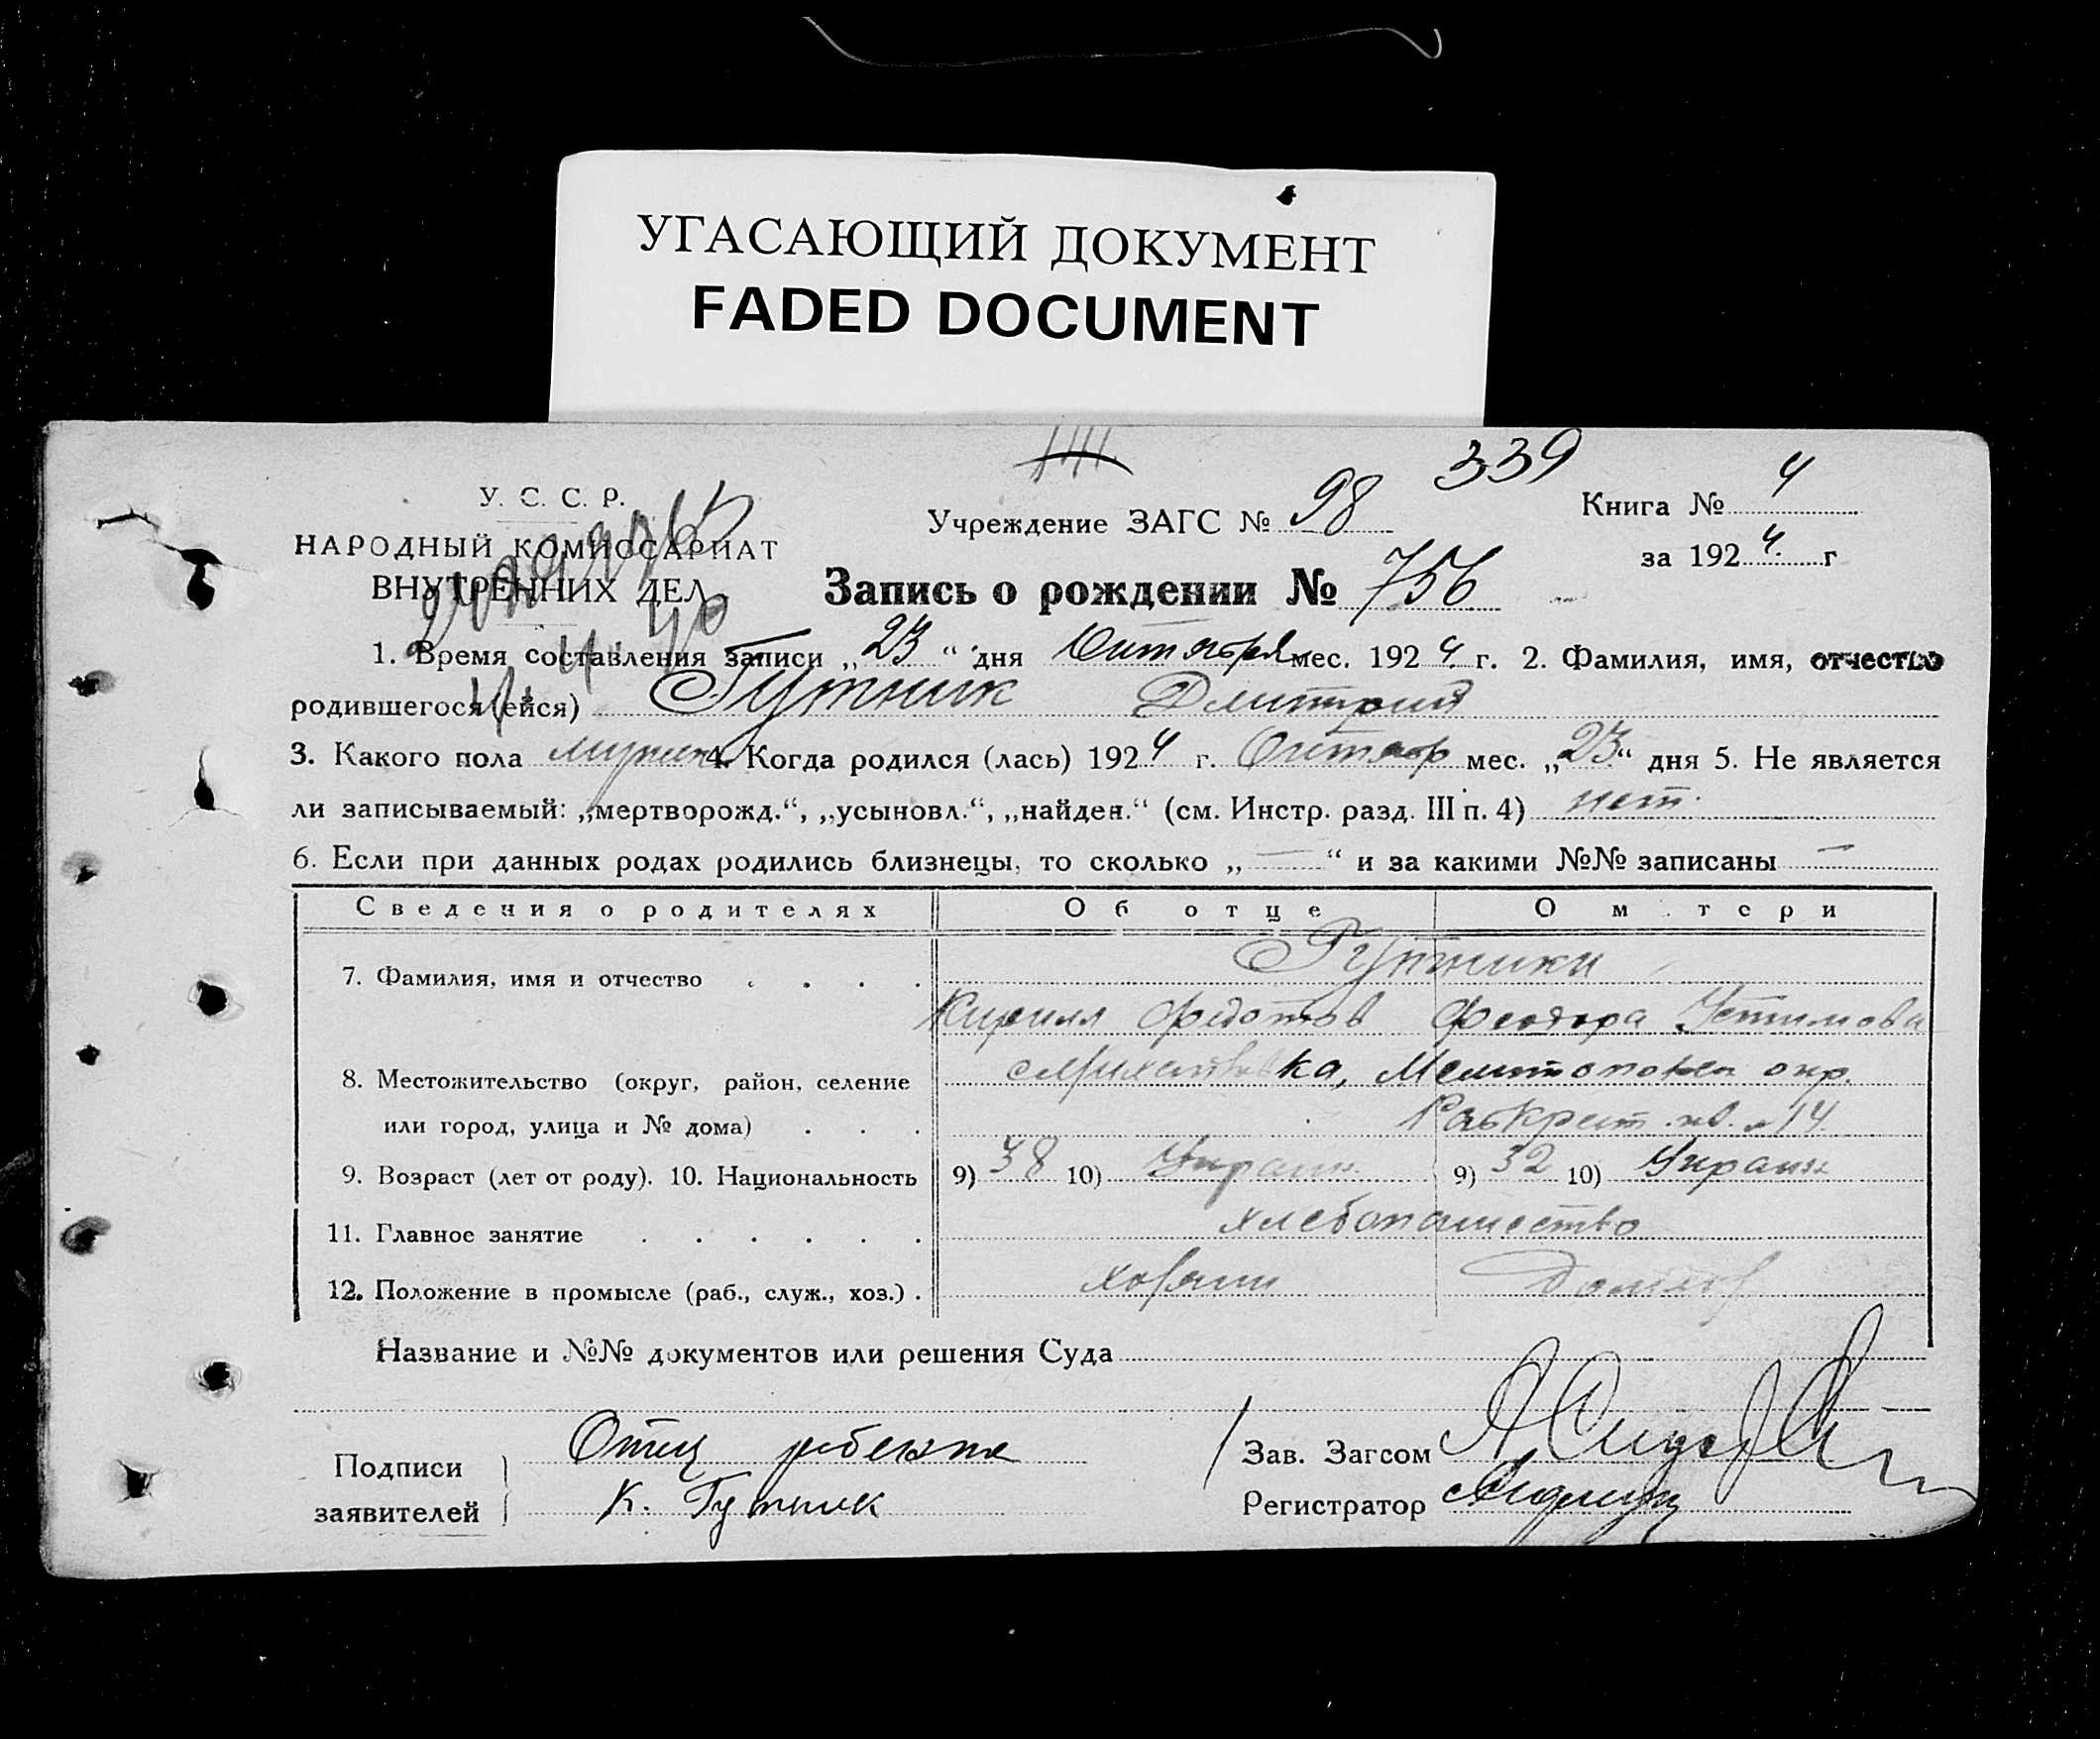 УГАСАЮЩИЙ ДОКУМЕНТ
FADED DOCUMENT
339
У. С. С. Р.
НАРОДНЫЙ КОМИССАРИАТ
ВНУТРЕННИХ ДЕЛ
Учреждение ЗАГС № 98
Книга № 4
за 1924 г
Запись о рождении № 756
1. Время составления записи „23“ дня Октября мес. 1924 г. 2. Фамилия, имя, отчество
родившегося (ейся) Гутник Дмитрий
3. Какого пола мужск 4. Когда родился (лась) 1924 г. Октябр мес. „23“ дня 5. Не является
ли записываемый: „мертворожд.“, „усыновл.“, „найден.“ (см. Инстр. разд. III п. 4) нет.
6. Если при данных родах родились близнецы, то сколько „—“ и за какими №№ записаны —
Сведения о родителях Об отце О м тери
7. Фамилия, имя и отчество . . . . Гутники
Кирилл Федотов Феодора Устимова
8. Местожительство (округ, район, селение Михайловка, Мелитопольск окр.
или город, улица и № дома) . . . 14
9. Возраст (лет от роду). 10. Национальность 9) 38 10) Украин. 9) 32 10) Украин
11. Главное занятие . . . . . . хлебопашество
12. Положение в промысле (раб., служ., хоз.) . хозяин домхоз
Название и №№ документов или решения Суда
Подписи заявителей
Отец ребенка
К. Гутник
Зав. Загсом
Регистратор